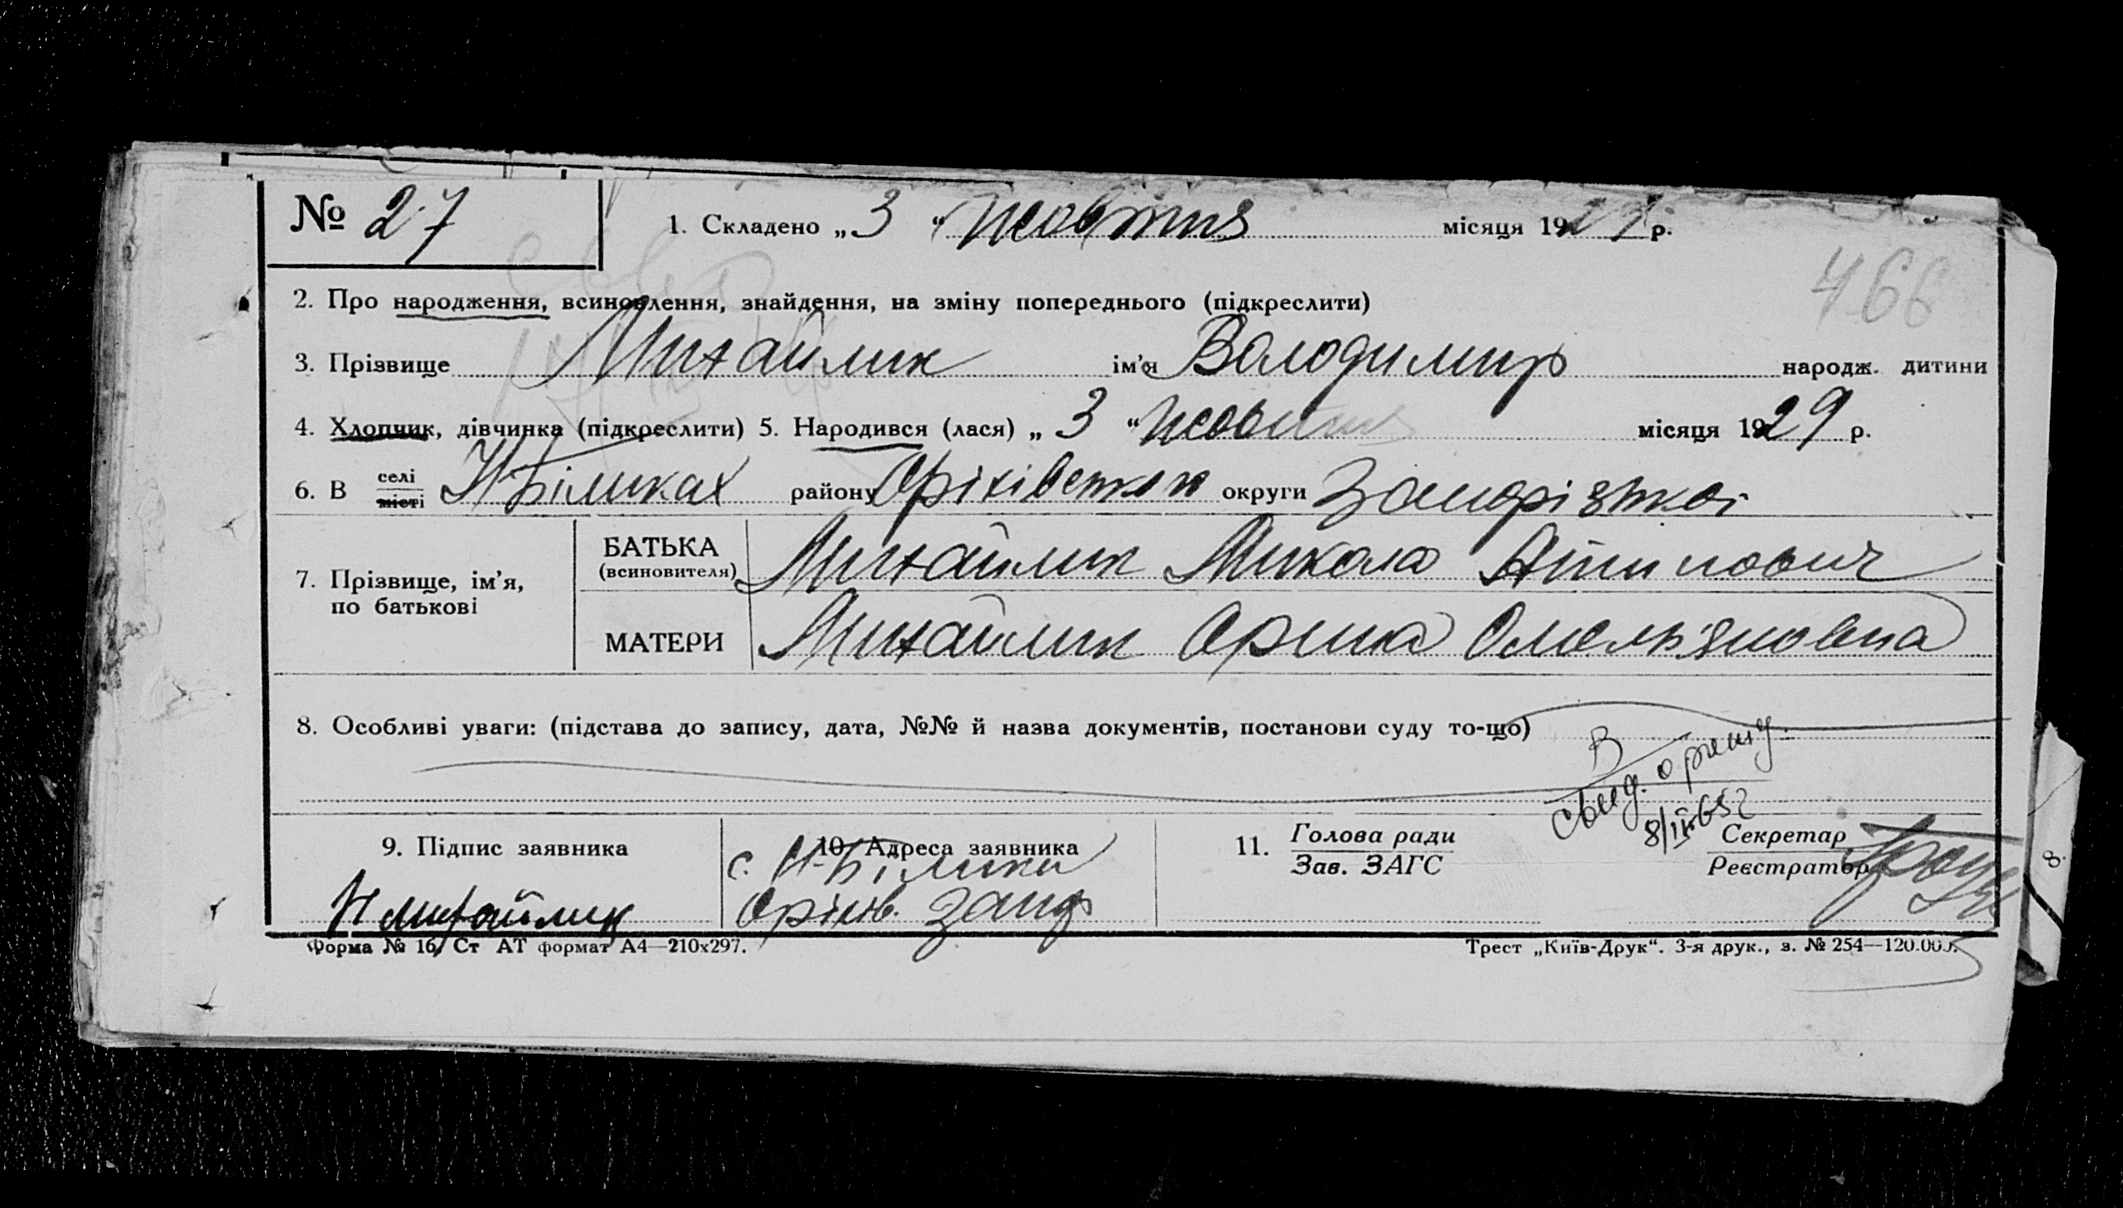 № 27
1. Складено „ 3 “ жовтня місяця 1929 р.
466
2. Про народження, всиновлення, знайдення, на зміну попереднього (підкреслити)
3. Прізвище Михайлик ім’я Володимир народж. дитини
4. Хлопчик, дівчинка (підкреслити) 5. Народився (лася) „ 3 “ жовтня місяця 1929 р.
6. В селі місті Н Біликах району Оріхівського округи Запорізької
7. Прізвище, ім’я, по батькові
БАТЬКА (всиновителя) Михайлик Микола Антипович
МАТЕРИ Михайлик Орина Омельяновна
8. Особливі уваги: (підстава до запису, дата, №№ й назва документів, постанови суду то-що)
В
свид. о рожд.
8/IX 65 г
9. Підпис заявника
Н Михайлик
10. Адреса заявника
с. Н-Білики
Оріхів. Запор
11. Голова ради
Зав. ЗАГС
Секретар
Реєстратор
8.
Форма № 16, Ст АТ формат А4—210x297.
Трест „Київ-Друк“. 3-я друк., з. № 254—120.000.